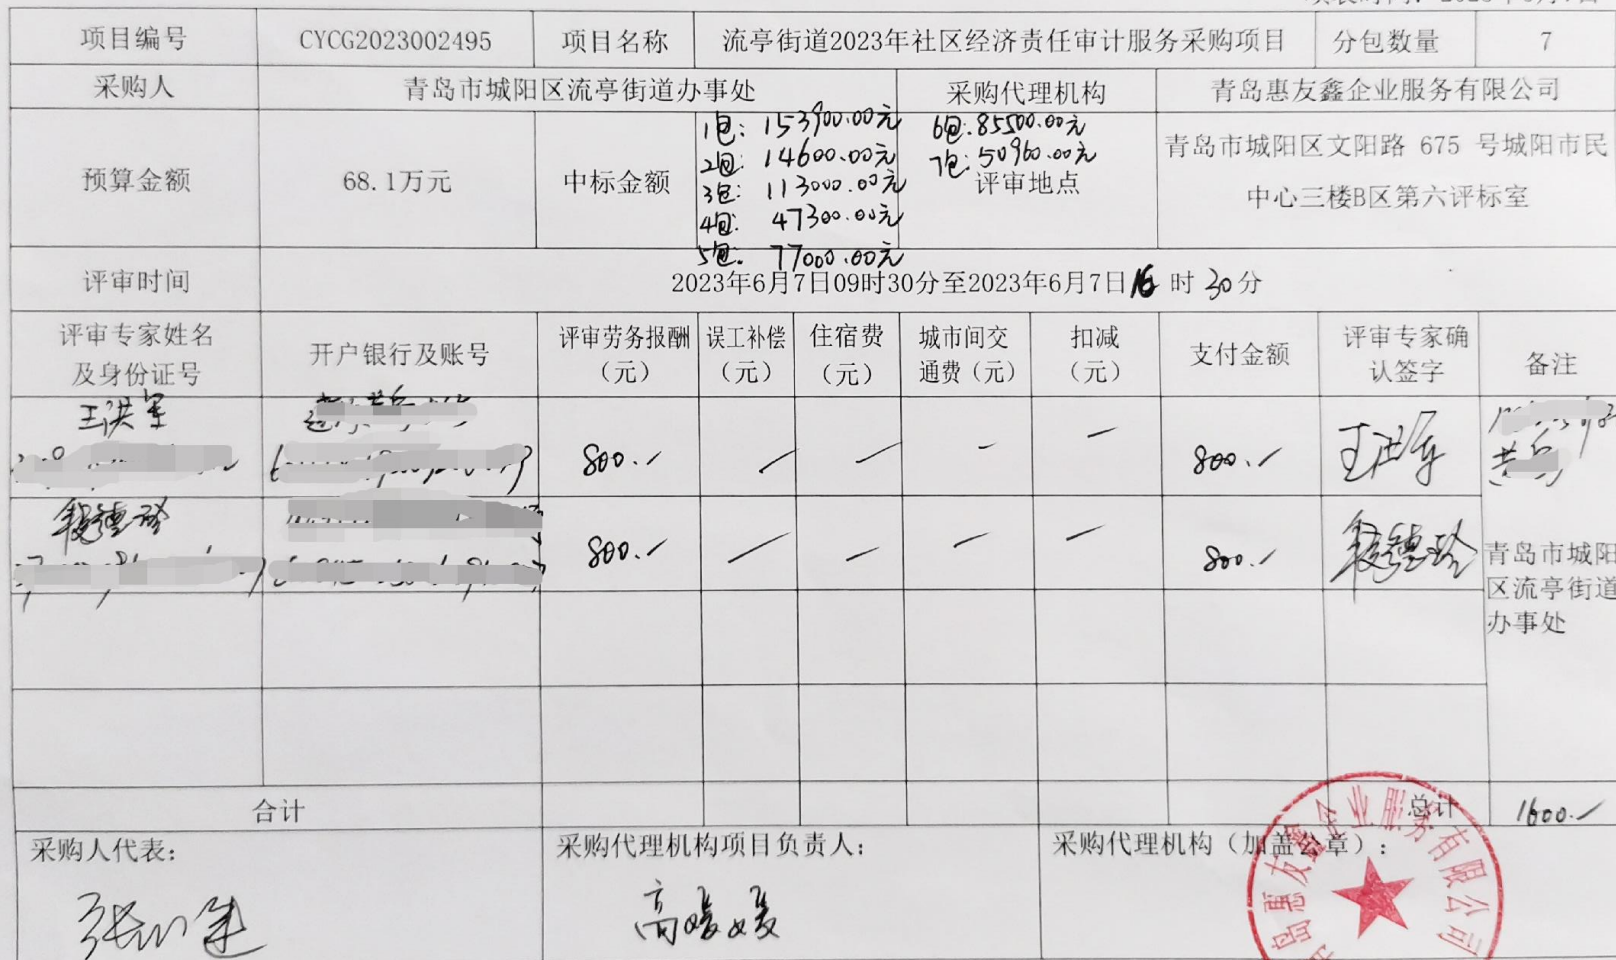 项目编号 CYCG2023002495 项目名称 流亭街道2023年社区经济责任审计服务采购项目 分包数量 7
采购人 青岛市城阳区流亭街道办事处 采购代理机构 青岛惠友鑫企业服务有限公司
预算金额 68.1万元 中标金额
1包: 153900.00元
2包: 14600.00元
3包: 113000.00元
4包: 47300.00元
5包: 77000.00元
6包: 85500.00元
7包: 50960.00元
评审地点
青岛市城阳区文阳路 675 号城阳市民
中心三楼B区第六评标室
评审时间 2023年6月7日09时30分至2023年6月7日16时30分
评审专家姓名
及身份证号
开户银行及账号
评审劳务报酬
(元)
误工补偿
(元)
住宿费
(元)
城市间交
通费(元)
扣减
(元)
支付金额
评审专家确
认签字
备注
王洪军
800.- / / - - 800.- 王洪军
段德玲
800.- / - - - 800.- 段德玲
青岛市城阳
区流亭街道
办事处
合计 总计 1600.-
采购人代表:
采购代理机构项目负责人:
高媛媛
采购代理机构(加盖公章):
岛惠友鑫企业服务有限公司